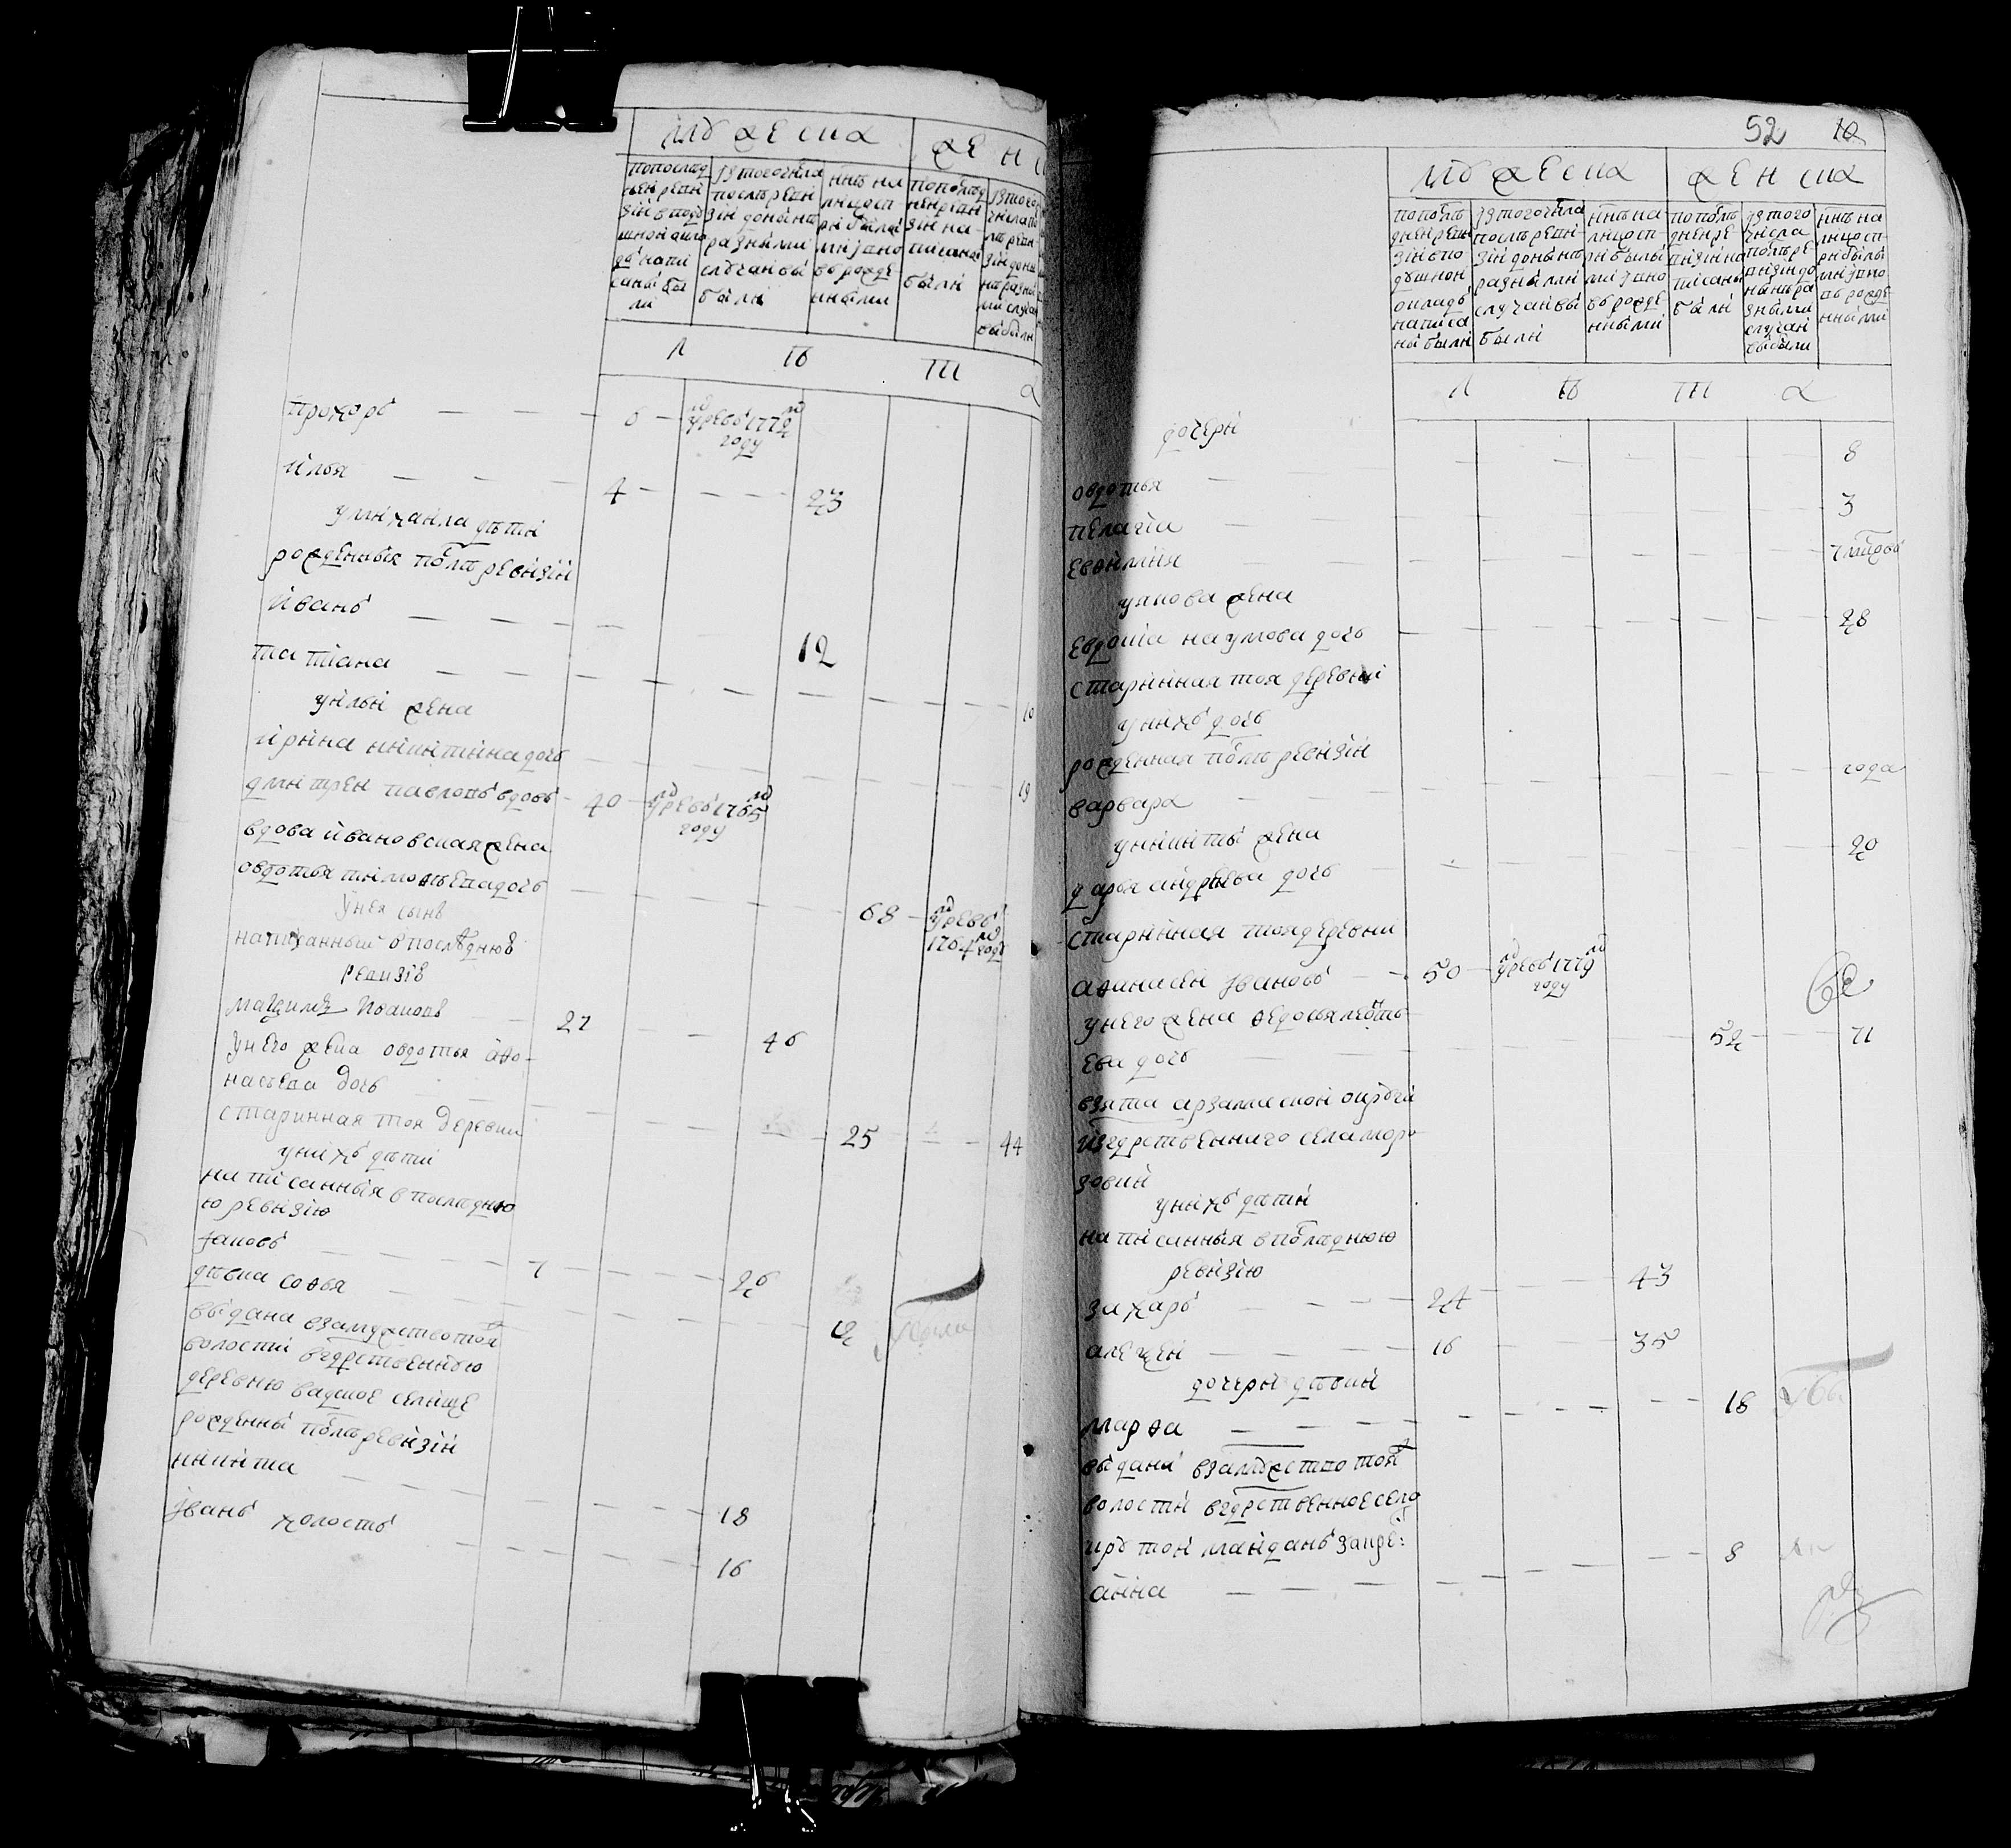 мужеска
жен
попослед
ней реви
зіи в поду
шной окла
дъ напи
саны бы
ли
ізтогочисла
послѣ реви
зіи донынѣ
разными
случаи вы
были
ннѣ на
лицо сп
рибылы
ми і вно
вь рожде
нными
попослѣд
ней реви
зіи на
писаны
были
лѣта
прохоръ — — — 6 — умре въ 1772 м году
илья — — — — 4 — — — — 23
у михаила дѣти
рожденныя послѣ ревизіи
иванъ — — — — 12
татіана — — — — 10
у ильи жена
ирина никитина дочь — — — 19
дмитрей павловъ вдовъ — 40 — умре въ 1765 м году
вдова ивановская жена
овдотья тимоѳѣева дочь — — — 68 — умре въ 1764 м году
у нея сынъ
написанный в послѣднюю
ревизію
маѯимъ Ивановъ — — 27 — — 46
у него жена овдотья аѳо-
насьева дочь
старинная тоя деревни — — — 25 — — 44
у нихъ дѣти
написанныя в послѣдню
ю ревизію
іаковъ — — — 7 — — — 26
дѣвка соѳья — — — 12
выдана в замужество тоя
волости в гдрственную
деревню вадское селище
рожденны послѣ ревизіи
никита — — — — 18
іванъ холостъ — — — 16
52 10
мужеска
женска
попослѣ
дней реви
зіи в по
душной
окладъ
написа
ны были
ізтогочисла
послѣ реви
зіи донынѣ
разными
случаи вы
были
ннѣ на
лицо сп
рибылы
ми і вно
вь рожде
нными
попослѣ
дней ре
визіи на
писаны
были
ізтого
числа
послѣ ре
визіи до
нынѣ ра
зными
случаи
выбыли
ннѣ на
лицо сп
рибылы
ми і вно
вь рожде
нными
лѣта
дочери
овдотья — — — 8
пелагіа — — — 3
евѳиміия — — —
у іакова жена
евдокіа наумова дочь — — — 28
старинная тоя деревни
у нихъ дочь
рожденная послѣ ревизіи
варвара — — — года
у никиты жена
дарья андреева дочь — — — 20
старинная тоя деревни
аѳанасеи івановъ — — 50 — умре въ 1779 м году
у него жена ѳедосья леонть
ева дочь — — — 52 — 71
взята арзамаской округи
из гдрственнаго села моро
зовки
у нихъ дѣти
написанныя в послѣднюю
ревизію
захаръ — — — 24 — — 43
алеѯеи — — — 16 — — 35
дочери дѣвки
марѳа — — — 18
выдана в замужество тоя
волости в гдрственное село
крутой майданъ за кре:
анна — — — 8